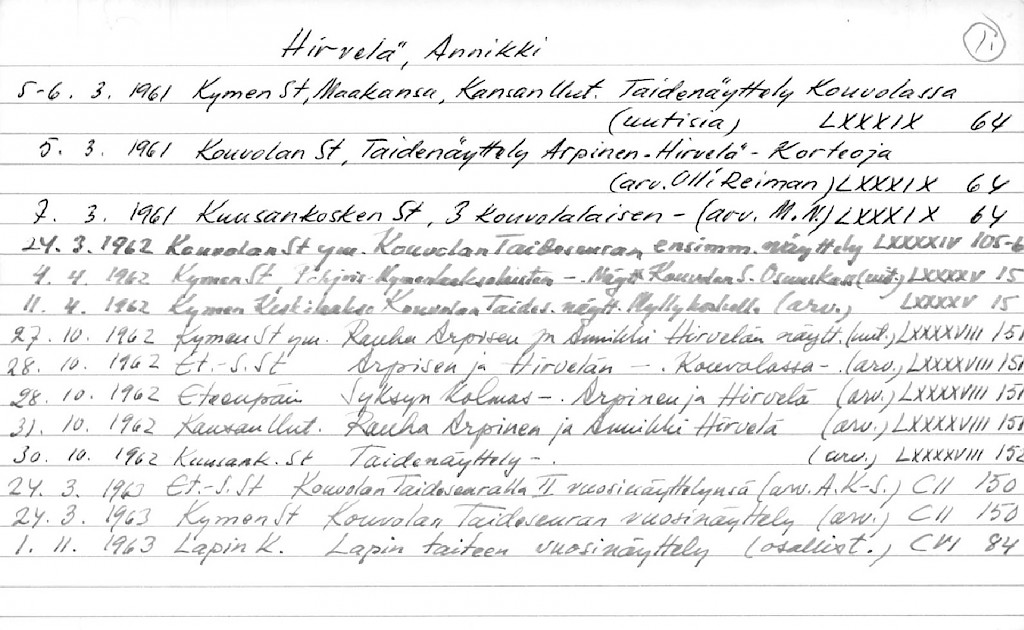 Hirvelä, Annikki
5-6. 3. 1961 Kymen St, Maakansa, Kansan Uut. Taidenäyttely Kouvolassa
(uutisia) LXXXIX 64
5. 3. 1961 Kouvolan St, Taidenäyttely Arpinen-Hirvelä-Korteoja
(arv. Olli Reiman) LXXXIX 64
7. 3. 1961 Kuusankosken St, 3 kouvolalaisen - (arv. M.N.) LXXXIX 64
24. 3. 1962 Kouvolan St ym. Kouvolan Taideseuran ensimm. näyttely LXXXXIV 105-6
4. 4. 1962 Kymen St, Pohjois-Kymenlaaksolaisten - . Näytt Kouvolan S. Osuuskass (uut.) LXXXXV 15
11. 4. 1962 Kymen Keskilaakso Kouvolan Taides. näytt. Myllykoskella (arv.) LXXXXV 15
27. 10. 1962 Kymen St ym. Rauha Arpisen ja Annikki Hirvelän näytt. (uut.) LXXXXVIII 151
28. 10. 1962 Et.-S. St Arpisen ja Hirvelän - . Kouvolassa - . (arv.) LXXXXVIII 151
28. 10. 1962 Eteenpäin Syksyn kolmas - . Arpinen ja Hirvelä (arv.) LXXXXVIII 151
31. 10. 1962 Kansan Uut. Rauha Arpinen ja Annikki Hirvelä (arv.) LXXXXVIII 151
30. 10. 1962 Kuusank. St Taidenäyttely - . (arv.) LXXXXVIII 152
24. 3. 1963 Et.-S. St Kouvolan Taideseuralla II vuosinäyttelynsä (arv. A.K-S.) CII 150
24. 3. 1963 Kymen St Kouvolan Taideseuran vuosinäyttely (arv.) CII 150
1. 11. 1963 Lapin K. Lapin taiteen vuosinäyttely (osallist.) CVI 84